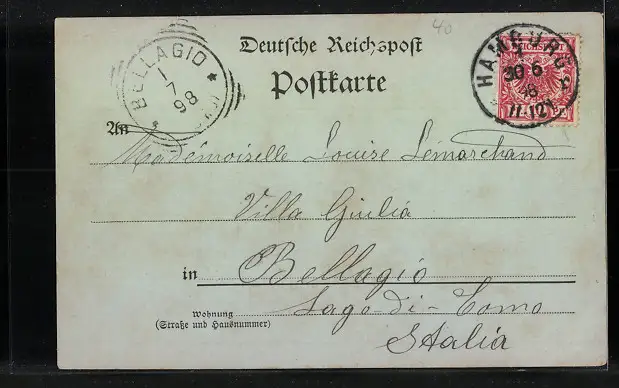 40
Deutsche Reichspost
Postkarte
BELLAGIO
1
7
98
HAMBURG
1
30 6
98
11-12V
An
Mademoiselle Louise Lemarchand
Villa Giulia
in Bellagio
Wohnung
(Straße und Hausnummer)
Lago-di-Como
Italia